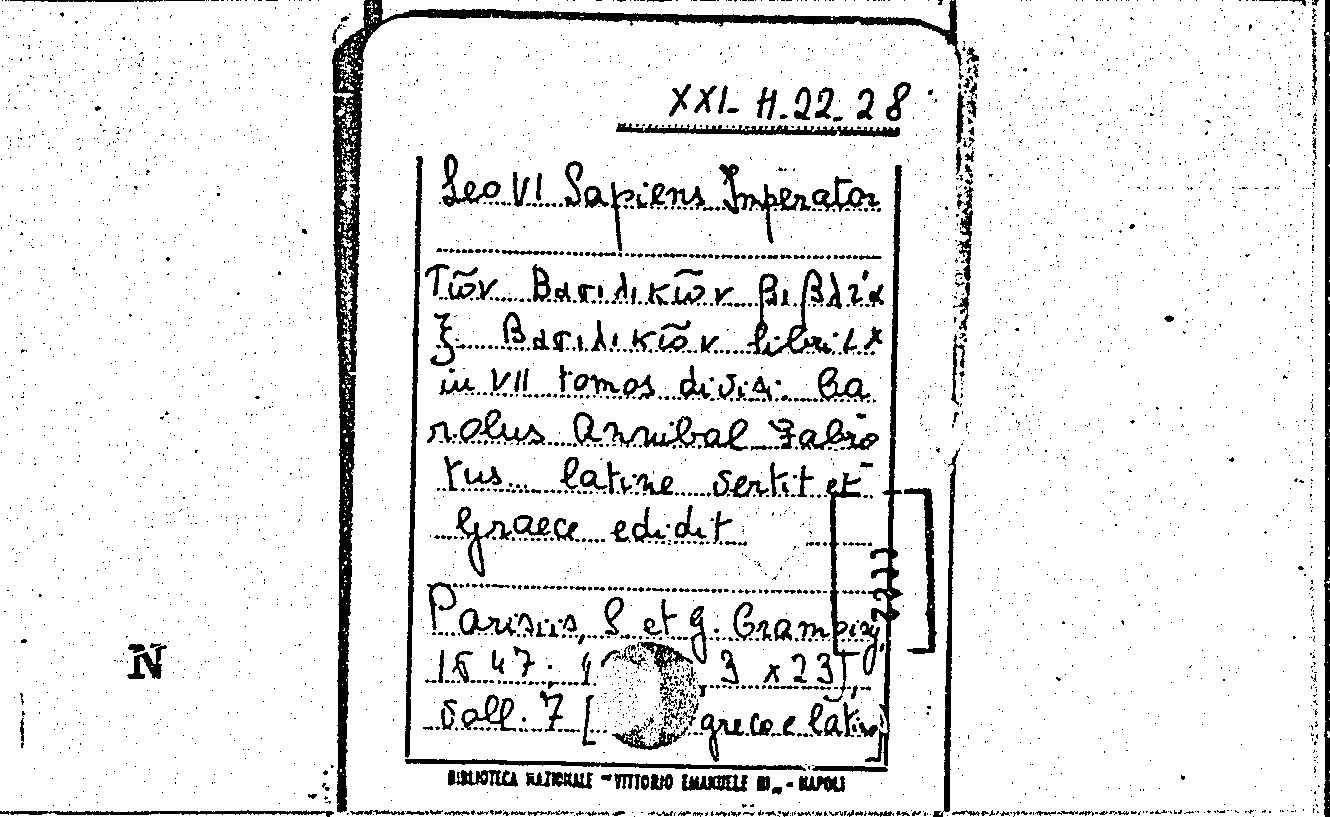 XXI- H.22-28
Leo VI Sapiens Imperator
Τῶν Βασιλικῶν βιβλία
ξ. Βασιλικῶν libri LX
in VII tomos divisi. Ca
rolus Annibal Fabro
tus latine vertit et
Graece edidit
Parisiis, S. et G. Cramoisy,
1647. 3 x 23),
voll. 7 [ greco e latino]
BIBLIOTECA NAZIONALE - VITTORIO EMANUELE III - NAPOLI
N